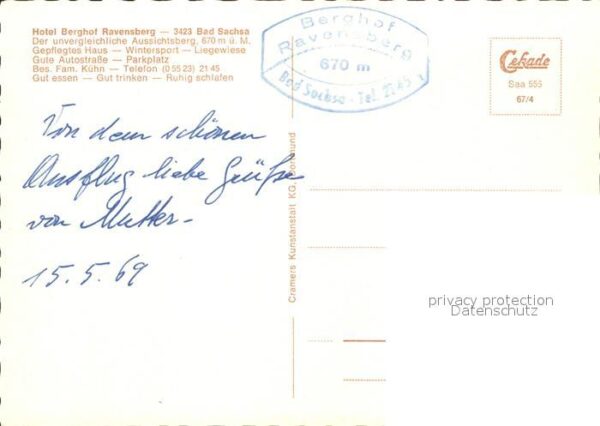 Hotel Berghof Ravensberg — 3423 Bad Sachsa
Der unvergleichliche Aussichtsberg, 670 m ü. M.
Gepflegtes Haus — Wintersport — Liegewiese
Gute Autostraße — Parkplatz
Bes. Fam. Kühn — Telefon (0 55 23) 21 45
Gut essen — Gut trinken — Ruhig schlafen
Berghof
Ravensberg
670 m
Bad Sachsa - Tel. 2145
Cekade
Saa 555
67/4
Von dem schönen
Ausflug liebe Grüße
von Mutter-
15.5.69
Cramers Kunstanstalt KG, Dortmund
privacy protection
Datenschutz